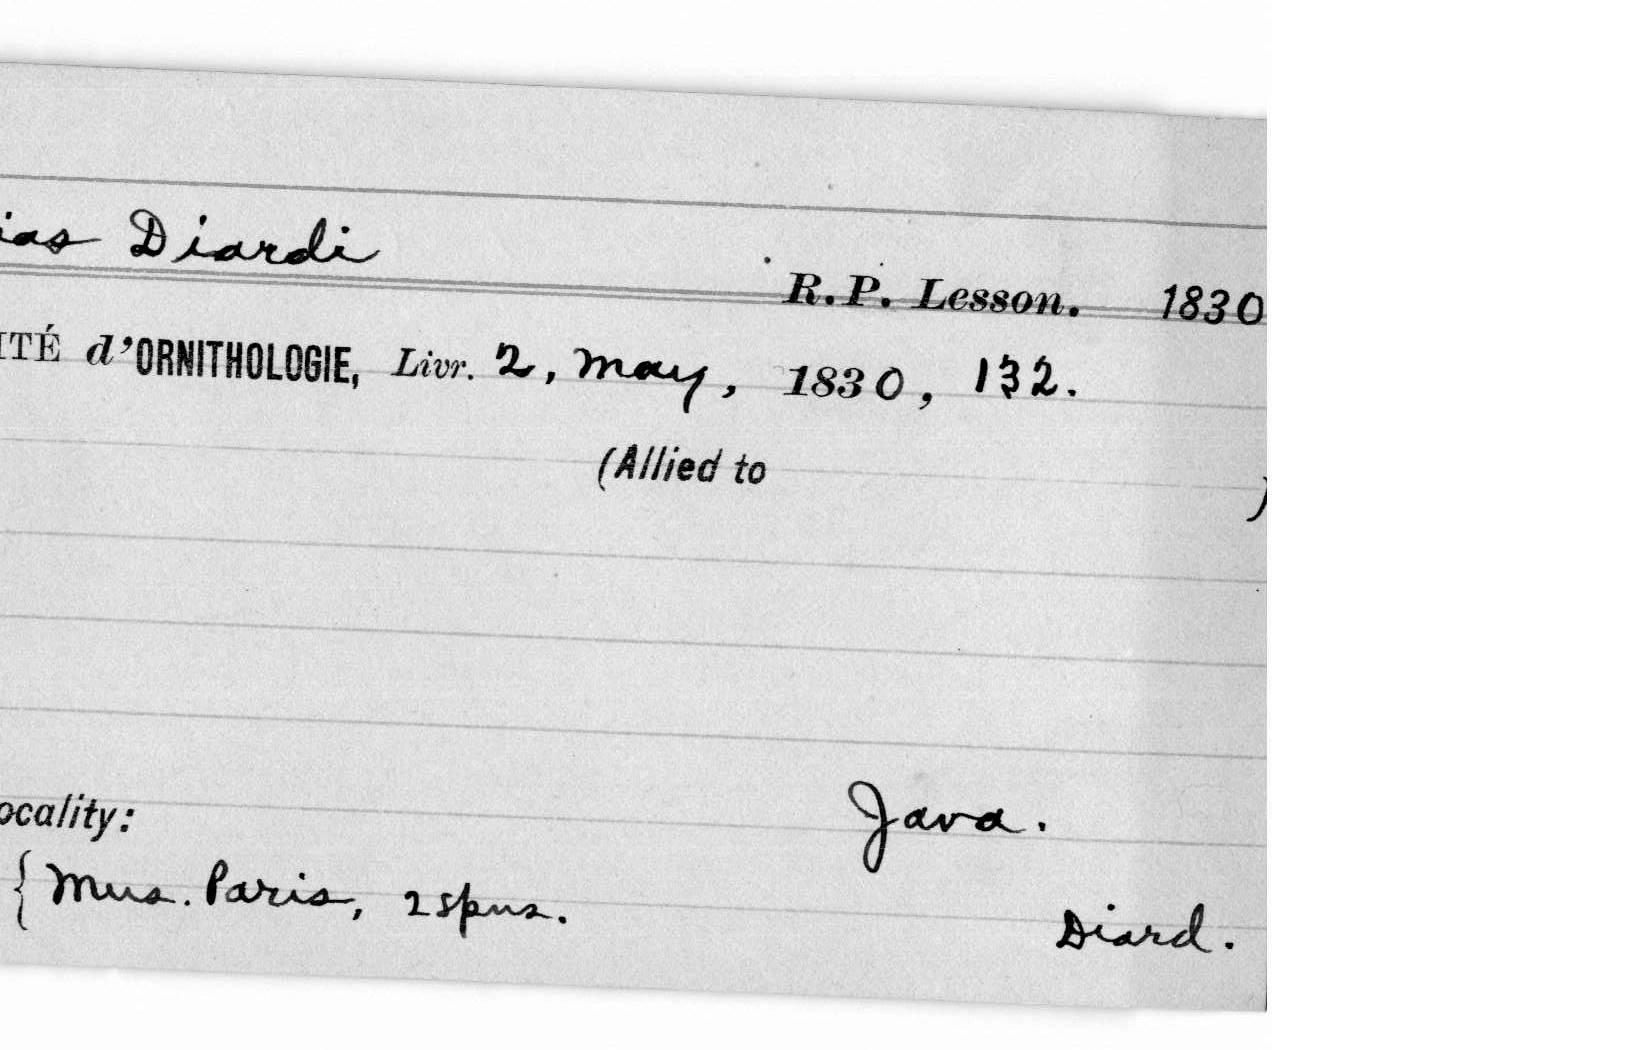 ias Diardi
R.P. Lesson. 1830
ITÉ d'ORNITHOLOGIE, Livr. 2, May, 1830, 132.
(Allied to )
ocality: Java.
{ Mus. Paris, 2 spns. Diard.